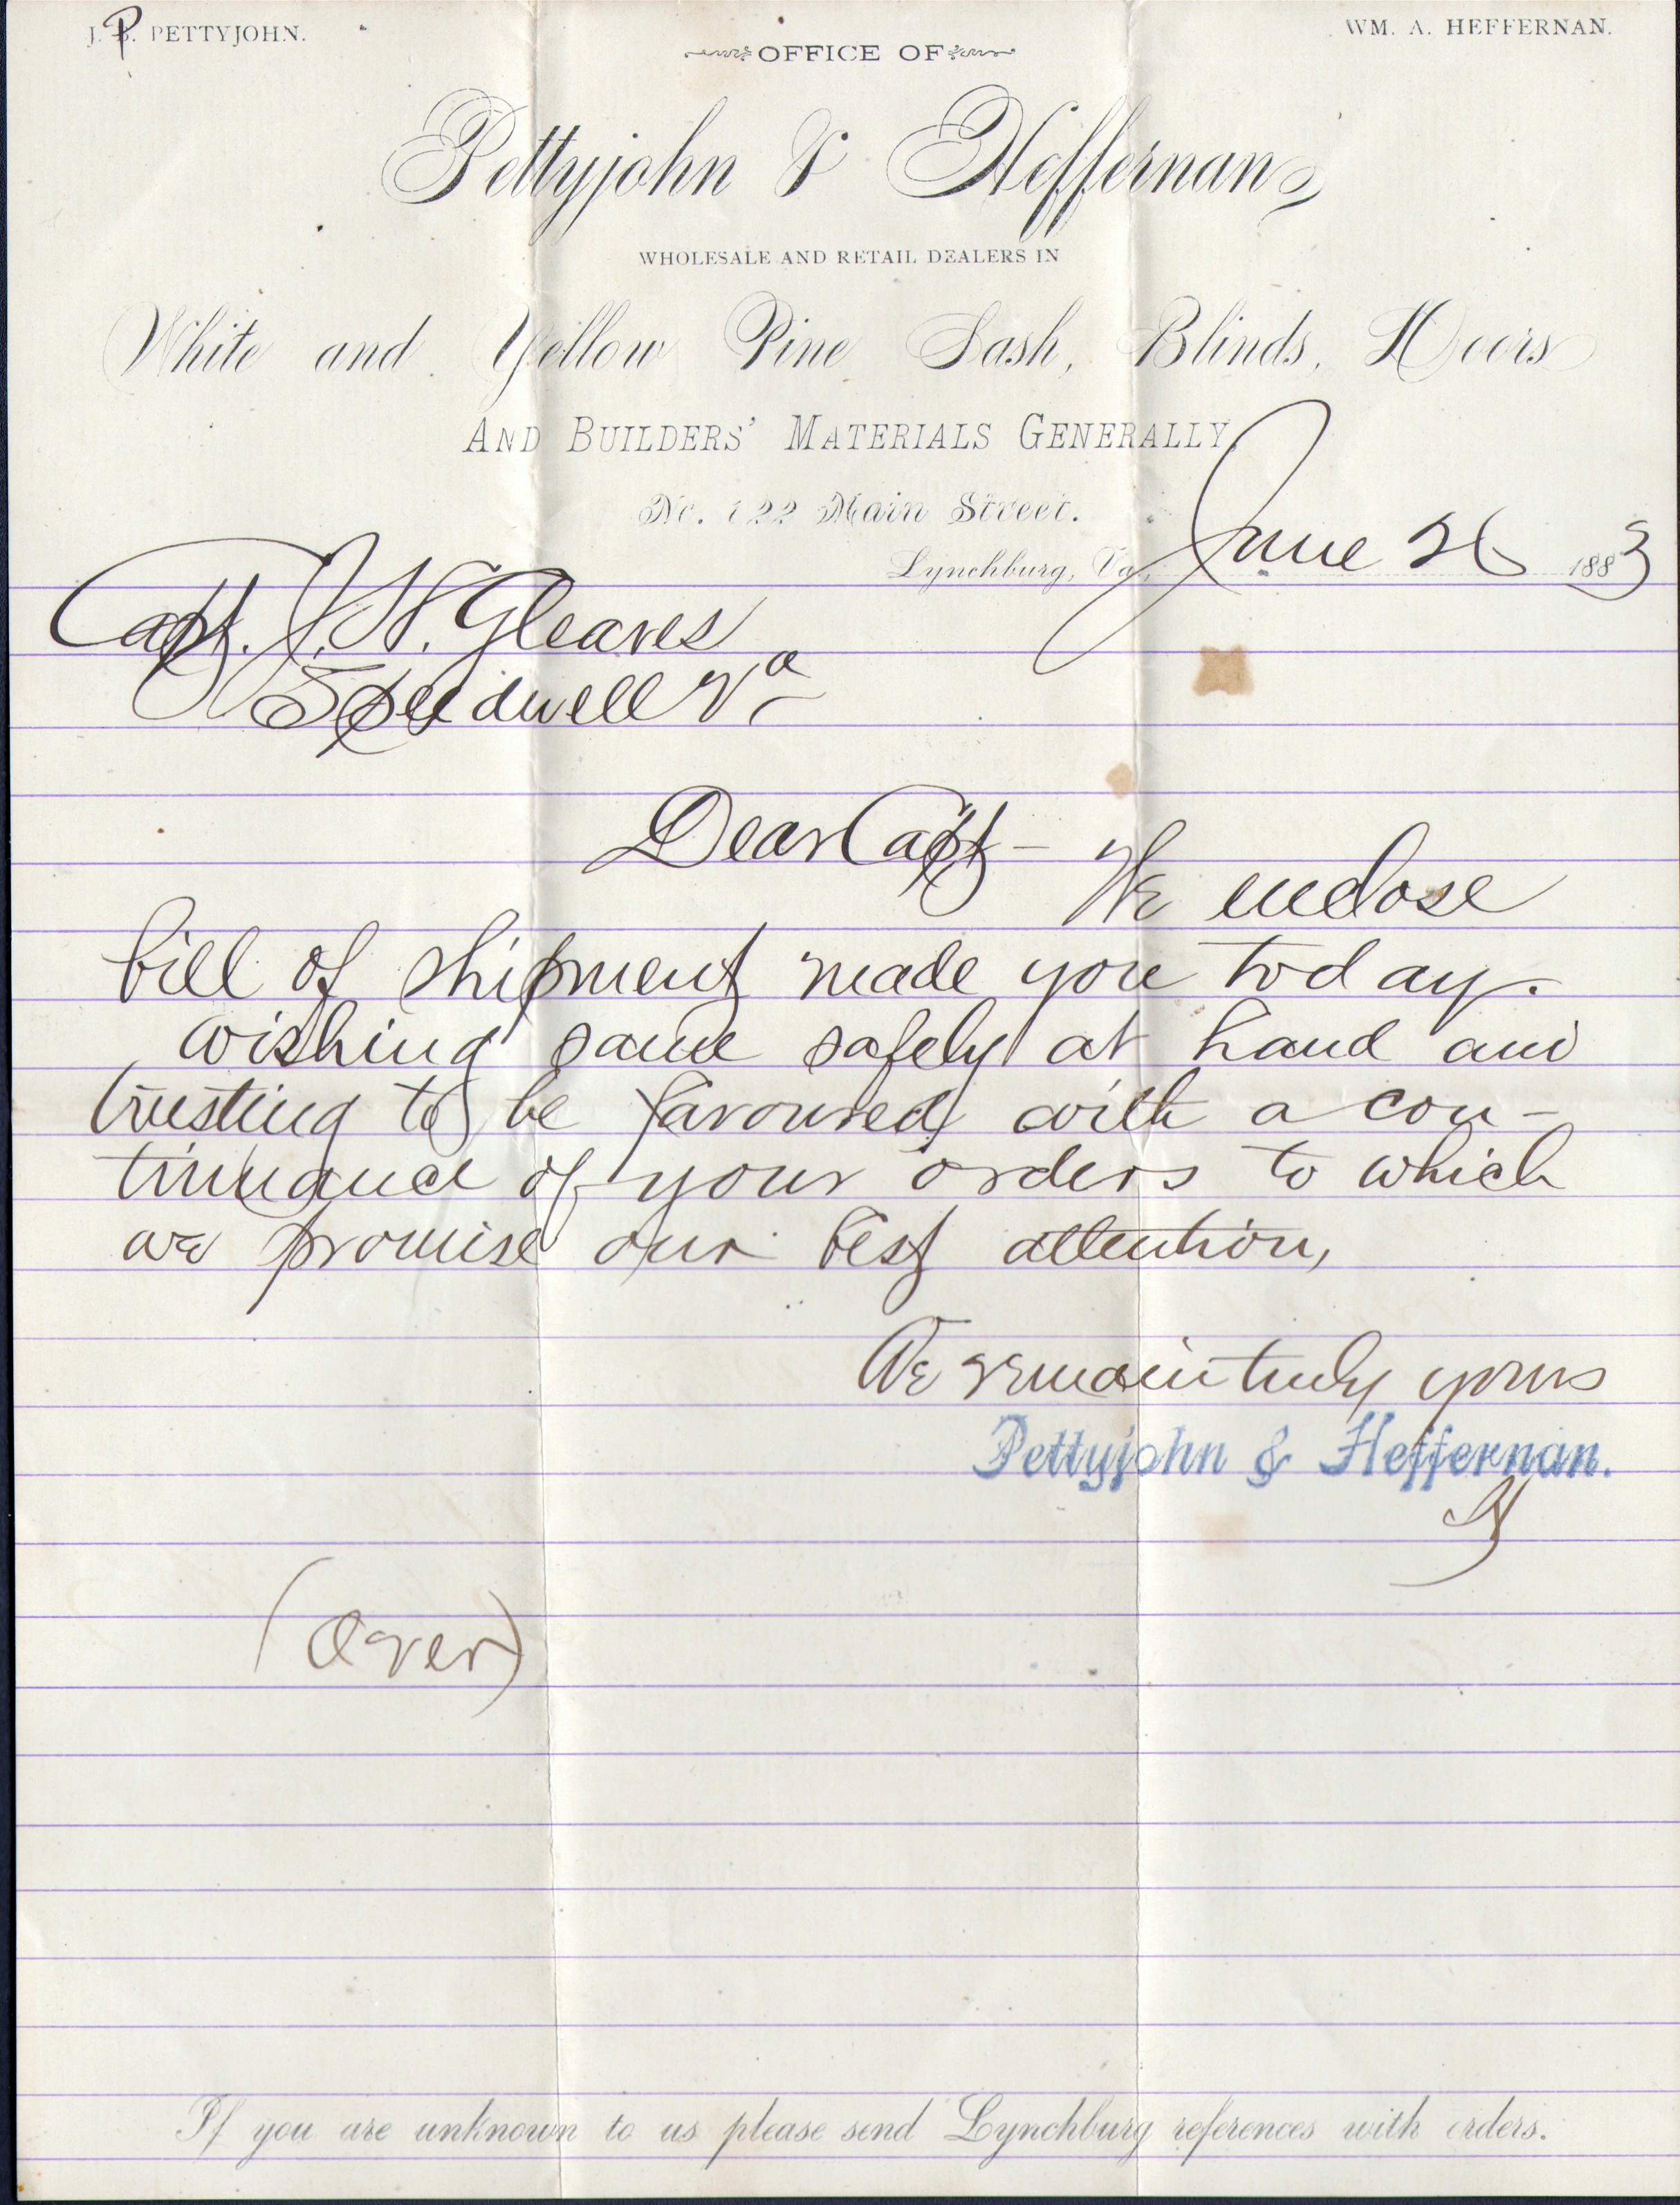 J. P. PETTYJOHN.
WM. A. HEFFERNAN.
OFFICE OF
Pettyjohn & Heffernan,
WHOLESALE AND RETAIL DEALERS IN
White and Yellow Pine Sash, Blinds, Doors
AND BUILDERS' MATERIALS GENERALLY,
No. 122 Main Street.
Lynchburg, Va., June 26 1883
Capt. J. W. Gleaves
Speedwell Va
Dear Capt - We enclose
bill of shipment made you today.
wishing same safely at hand and
trusting to be favoured with a con-
tinuance of your orders to which
we promise our best attention,
We remain truly yours
Pettyjohn & Heffernan.
(over)
If you are unknown to us please send Lynchburg references with orders.